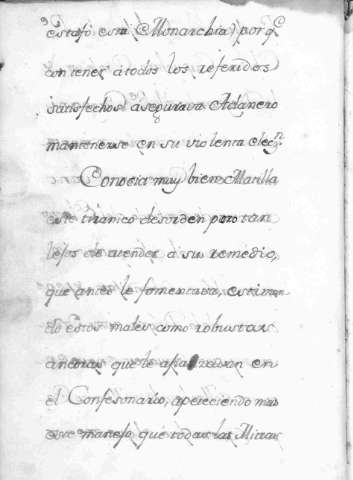 estafó esta Monarchia) porq.e
con tener á todos los referidos
satisfechos asegurava Adanero
mantenerse en su violenta elec.n
Conocia muy bien Matilla
este tiranico desorden pero tan
lejos de atender á su remedio,
que antes le fomentava, estiman
do estos males como robustas
ancoras que le afianzavan en
el Confesonario, apeteciendo mas
este manejo que todas las Mitras